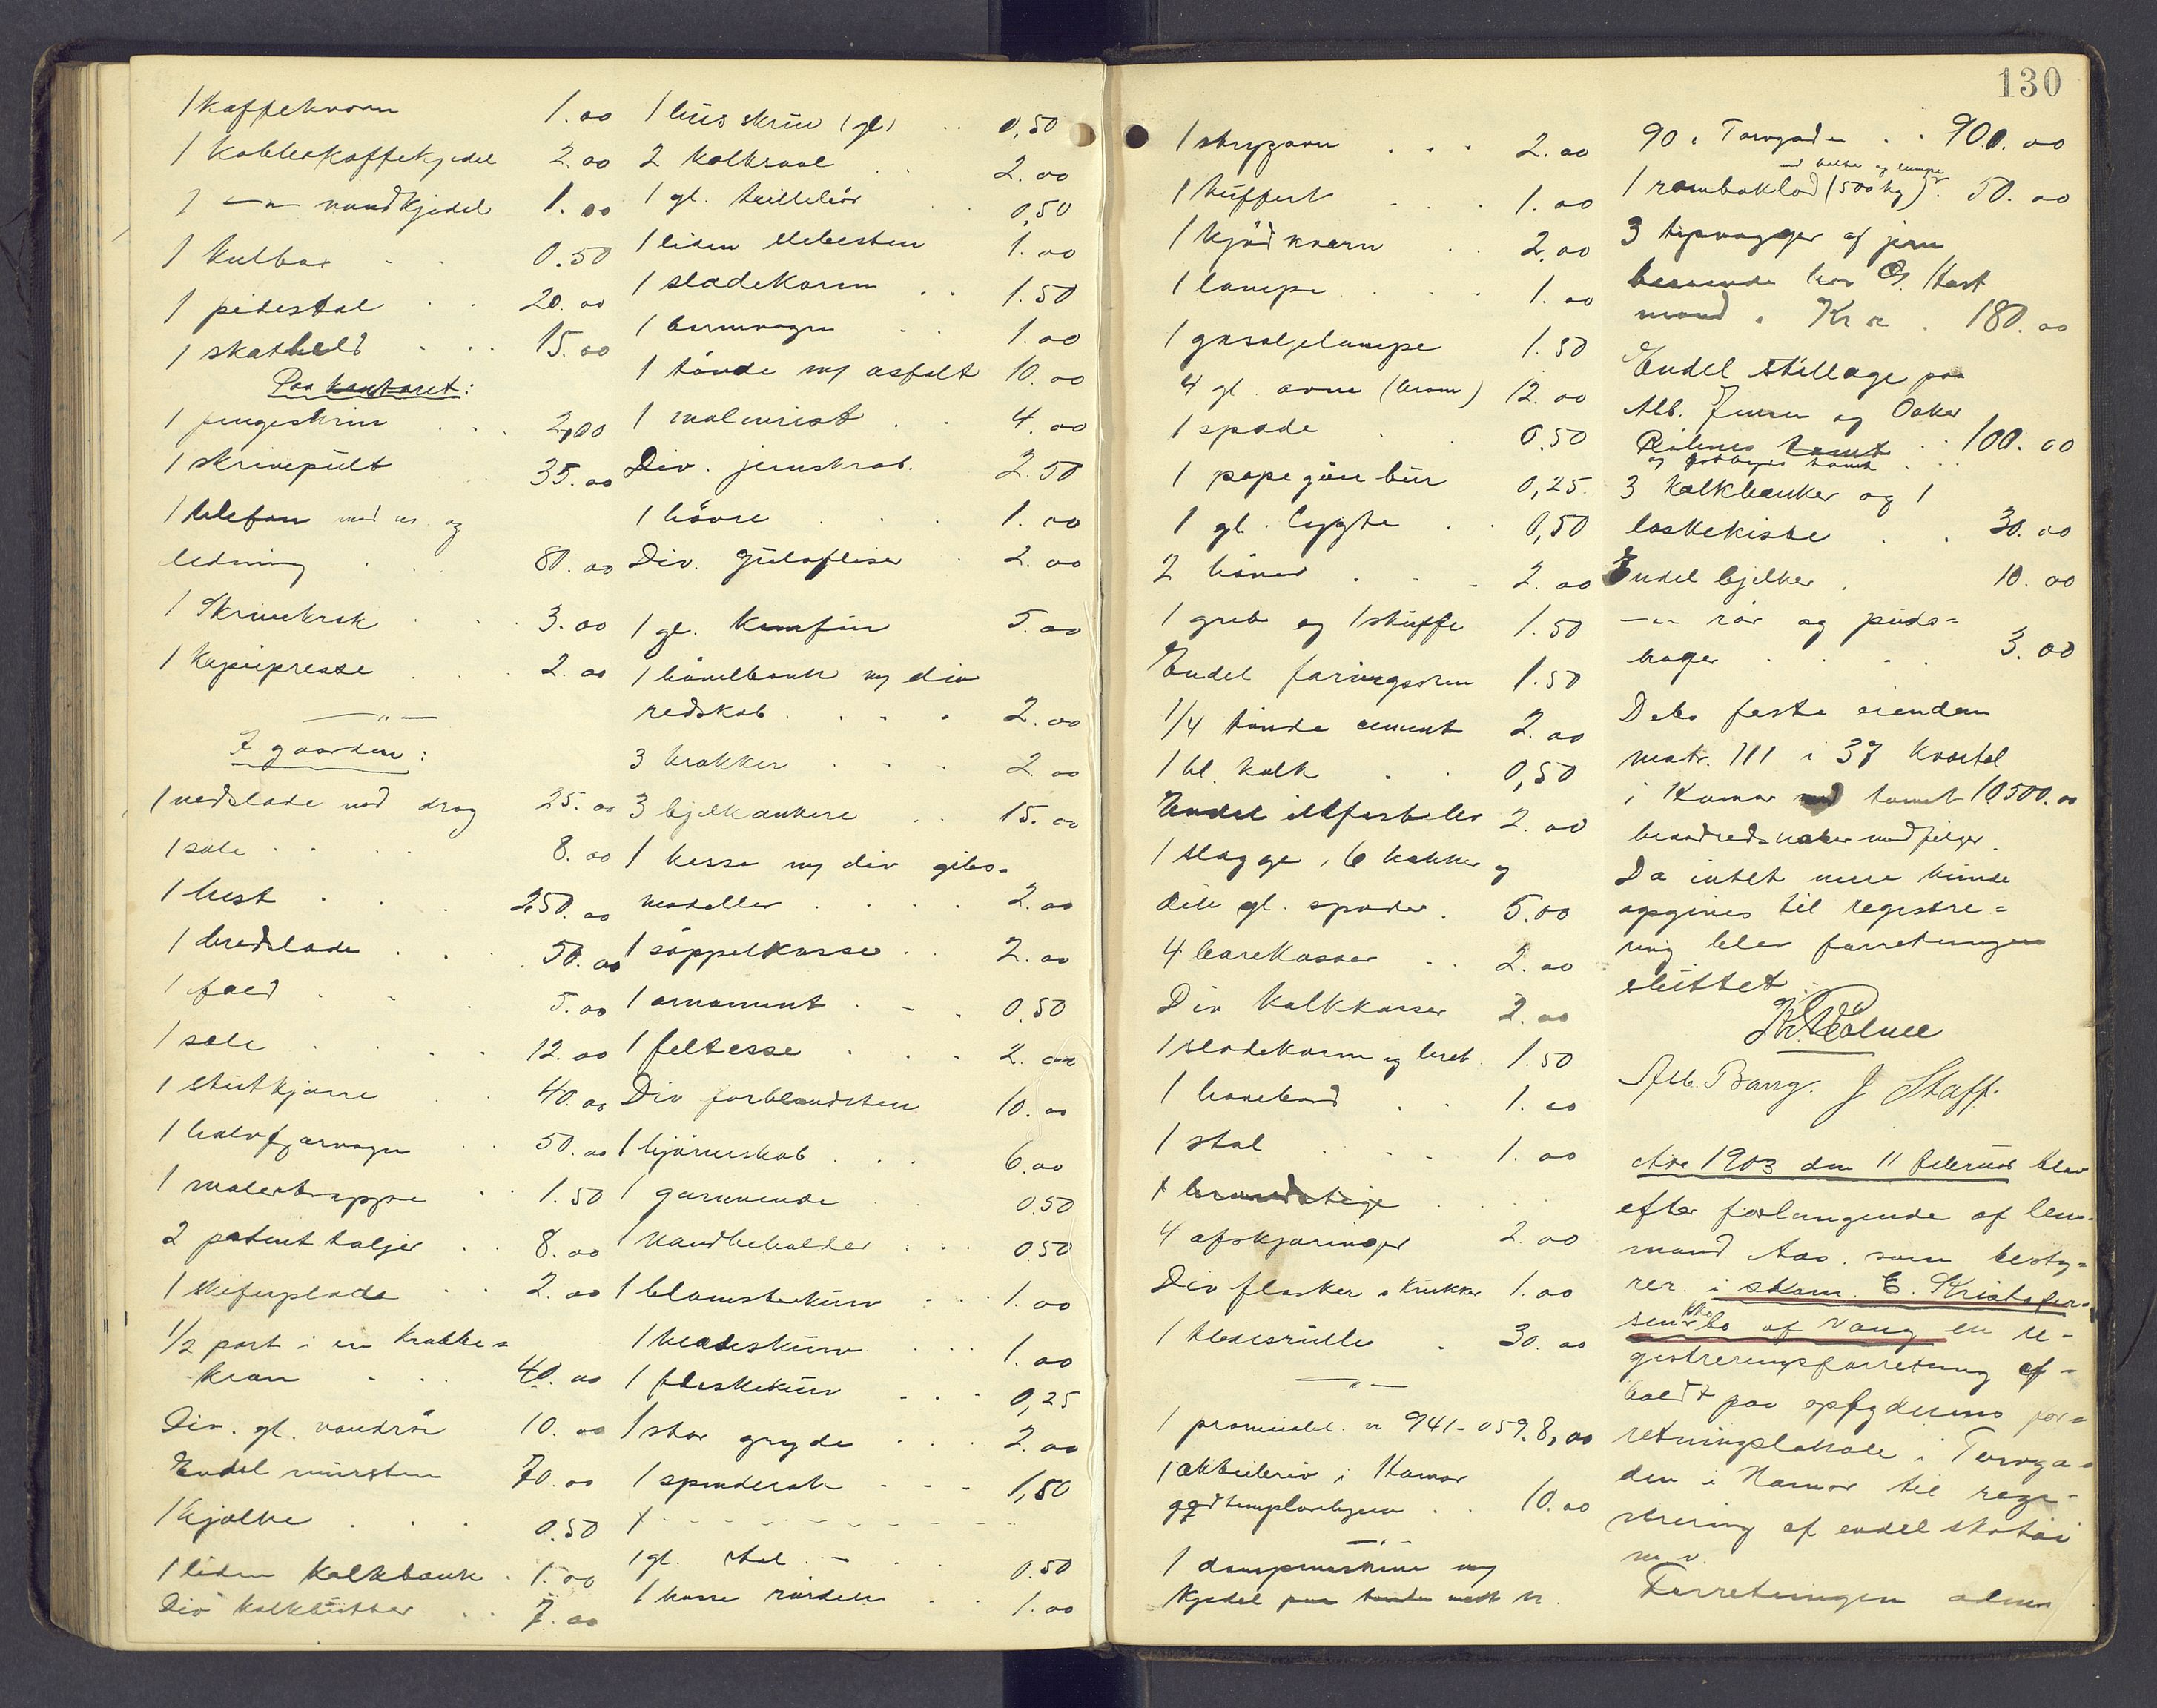 1 kaffekværn 1.00
1 kobberkaffekjedel 2.00
1 —"— vandkjedel 1.00
1 kulbox 0.50
1 pidestal 20.00
1 skathold 15.00
Paa kontoret:
1 pengeskrin 2,00
1 skrivepult 35.00
1 telefon med og
ledning 80.00
1 Skrivekrak 3.00
1 kopipresse 2.00
—"—
I gaarden:
1 vedslæde med drag 25.00
1 sæle 8.00
1 hest 250.00
1 bredslæde 50.00
1 fæld 5.00
1 sæle 12.00
1 stutkjærre 40.00
1 halvfjærvogn 50.00
1 malertrappe 1.50
2 patent taljer 8.00
1 skiferplade 2.00
1/2 part i en krabbe=
kran 40.00
Div. gl. vandrør 10.00
Endel mursten 70.00
1 kjælke 0.50
1 liden kalkbænk 1.00
Div kalkbøtter 7.00
1 hus skrue (gl) 0,50
2 kalksaal 2.00
1 gl. trillebør 0,50
1 liden slibesten 1.00
1 sladekarm 1.50
1 barnevogn 1.00
1 tønde m/ asfalt 10.00
1 malmrist 4.00
Div. jernskrab. 2.50
1 høvre 1.00
Div. gulvfliser 2.00
1 gl. komfur 5.00
1 høvelbænk m/ div
redskab 2.00
3 krakker 2.00
3 bjelkankere 15.00
1 kasse m/ div gibs=
modeller 2.00
1 søppelkasse 2.00
1 ornament 0.50
1 feltesse 2.00
Div forblendsten 10.00
1 hjørneskab 6.00
1 garnvende 0.50
1 vandbeholder 0.50
1 blomsterkurv 1.00
1 klædeskurv 1.00
1 flaskekurv 0,25
1 stor gryde 2.00
1 spinderok 1,50
1 - - - - - - -
1 gl. stol 0.50
1 kasse rørdele 1.00
130
1 strygovn 2.00
1 kuffert 1.00
1 kjødkværn 2.00
1 lampe 1.00
1 gasoljelampe 1.50
4 gl. ovne 12.00
1 spade 0.50
1 papegøie bur 0,25
1 gl. lygte 0,50
2 høner 2.00
1 greb og 1 skuffe 1.50
Endel foringssten 1.50
1/4 tønde cement 2.00
1 hl. kalk 0,50
Endel ildfast ler 2.00
1 slægge, 6 hakker og
gl. spader 5.00
4 bærekasser 2.00
Div kalkkasser 2.00
1 sladekarm og bret 1.50
1 havebord 1.00
1 stol 1.00
1 brandstige
4 afskjæringer 2.00
Div flasker o krukker 1.00
1 klædesrulle 30.00
—"—
1 præmieobl. nr 941-059. 8,00
1 aktiebrev i Hamar
godtemplarhjem 10.00
—"—
1 dampmaskine m/
kjedel
90 i Torvgaden 900.00
med kulde og lampe
1 (500 kg) 50.00
3 tipvogger af jern
beroende hos O. Hart
mand Kr a 180.00
Endel stillage paa
Alb. Jensen og Oskar
tomt 100.00
tomt
3 kalkbænker og 1
læskekiste 30.00
Endel bjelker 10.00
—"— rør og puds=
hager 3.00
Debs faste eiendom
matr. 111 i 37 kvartal
i Hamar med tomt 10500.00
medfølger.
Da intet mere kunde
opgives til registre=
ring blev forretningen
sluttet.
Alb. Bang. J Staff.
Aar 1903 den 11 februar blev
efter forlangende af lens-
mand Aas. som besty=
rer. i skom. E. Kristofer=
sens bo af Vang en re-
gistreringsforretning af-
holdt paa opbyderens for=
retningslokale i Torvga=
den i Hamar til regi-
strering af endel skotøi
m. v.
Forretningen